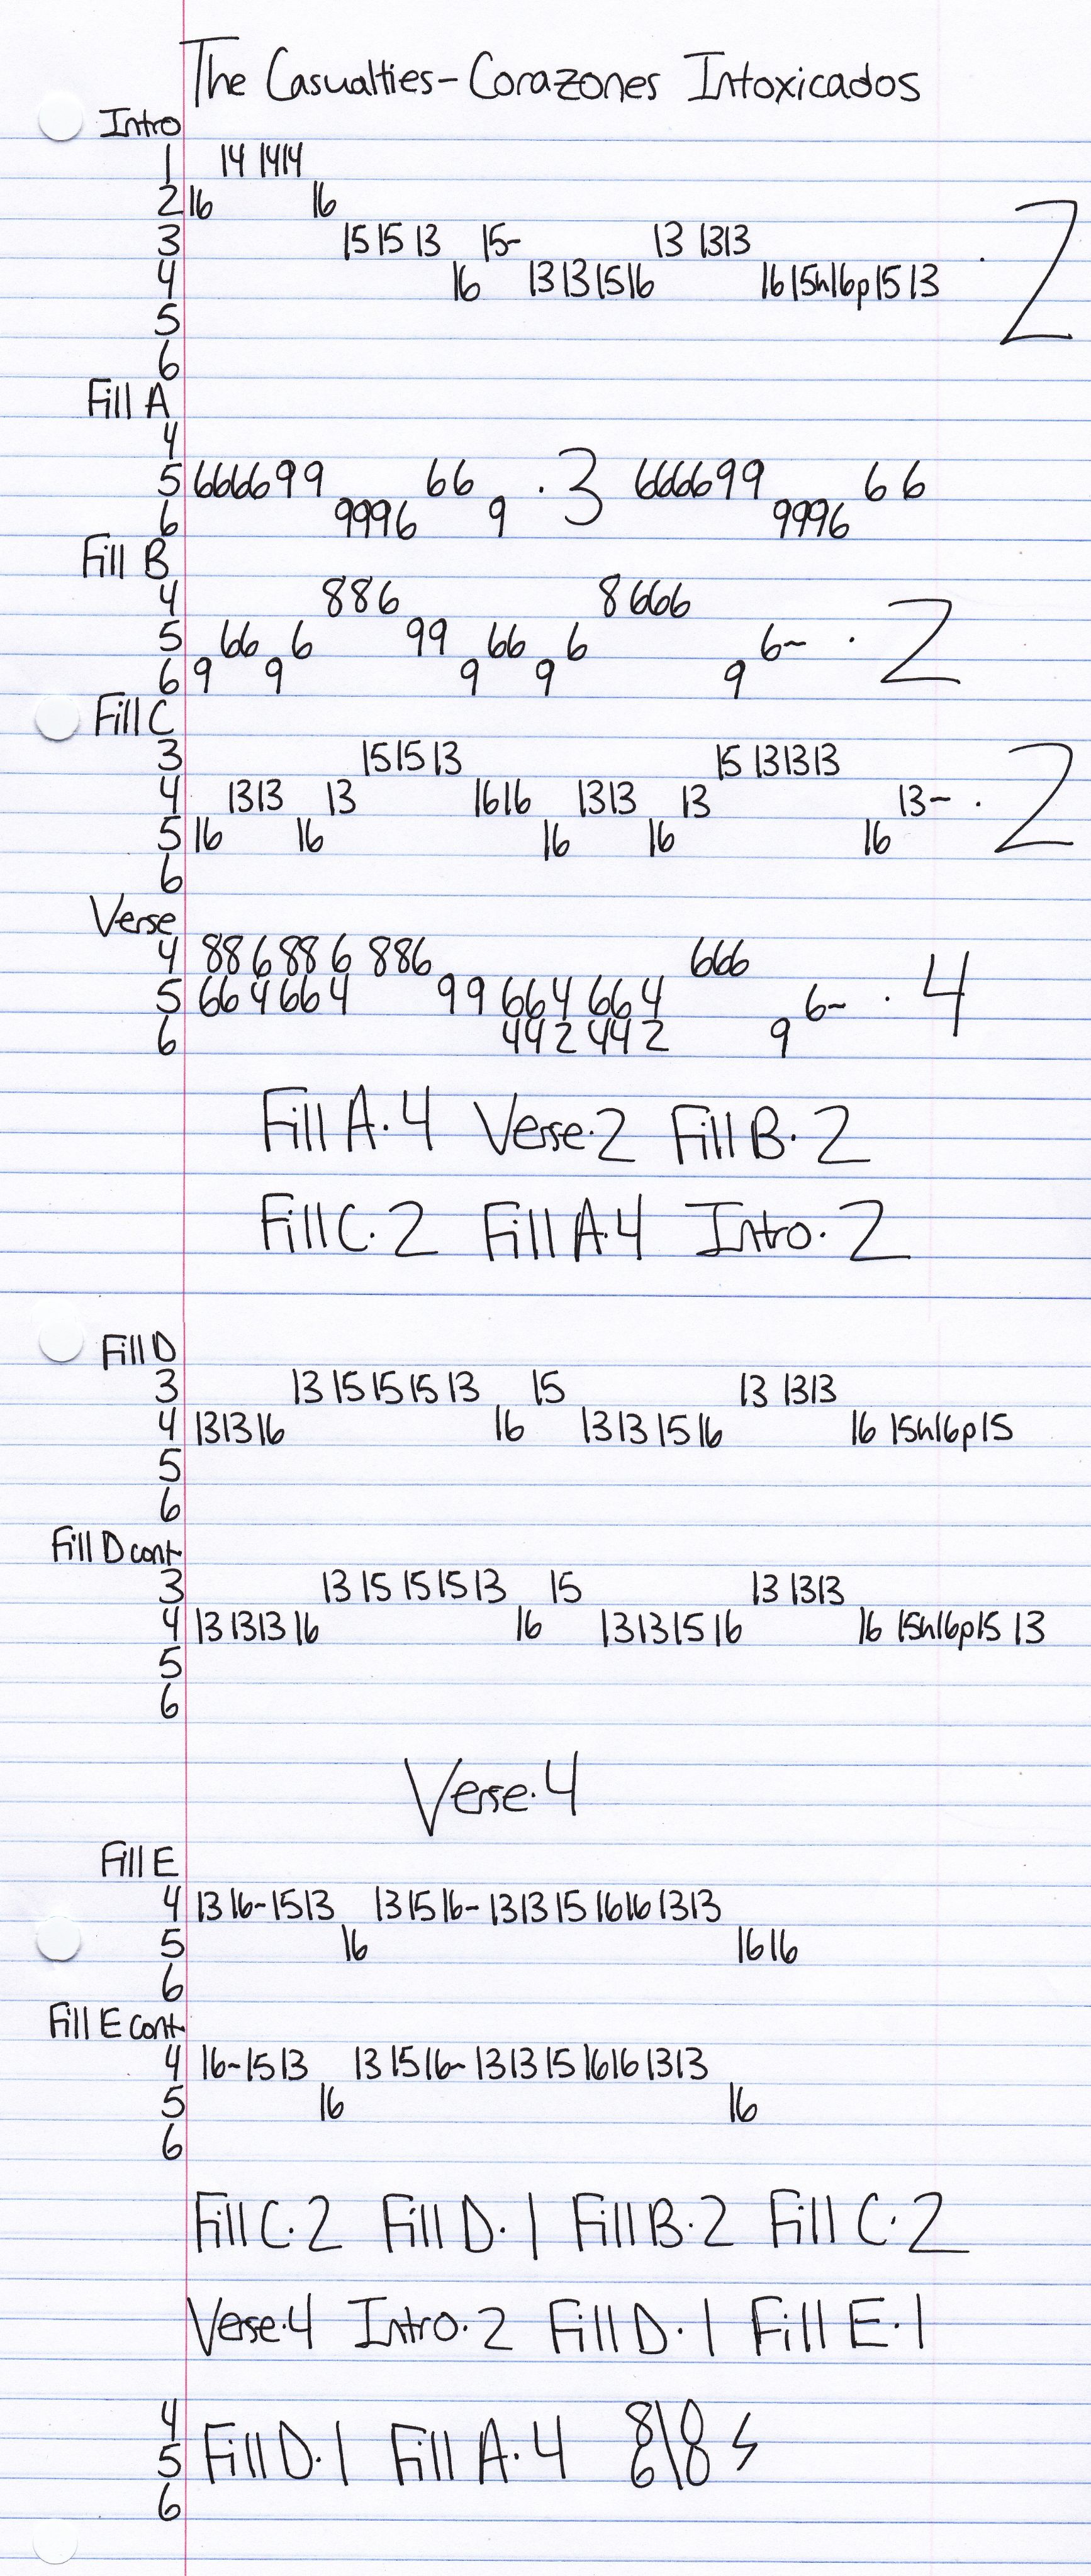 The Casualties-Corazones Intoxicados
Intro
1 14 1414
2 16 16
3 15 15 13 15- 13 1313
4 16 13 13 15 16 16 15h16p15 13 · 2
5
6
Fill A
4
5 6666 99 66 · 3 6666 99 66
6 9996 9 9996
Fill B
4 886 8 666
5 66 6 99 66 6 6~ · 2
6 9 9 9 9 9
Fill C
3 15 15 13 15 13 13 13
4 1313 13 1616 1313 13 13~ · 2
5 16 16 16 16 16
6
Verse
4 88 6 88 6 886 666
5 66 4 66 4 99 66 4 66 4 6~ · 4
6 44 2 44 2 9
Fill A·4 Verse·2 Fill B·2
Fill C·2 Fill A·4 Intro·2
Fill D
3 13 15 15 15 13 15 13 1313
4 13 13 16 16 13 13 15 16 16 15h16p15
5
6
Fill D cont.
3 13 15 15 15 13 15 13 1313
4 13 13 13 16 16 13 13 15 16 16 15h16p15 13
5
6
Verse·4
Fill E
4 13 16~15 13 13 15 16~ 13 13 15 16 16 13 13
5 16 16 16
6
Fill E cont.
4 16~15 13 13 15 16~ 13 13 15 16 16 13 13
5 16 16
6
Fill C·2 Fill D·1 Fill B·2 Fill C·2
Verse·4 Intro·2 Fill D·1 Fill E·1
4 8\0
5 Fill D·1 Fill A·4 6\0
6